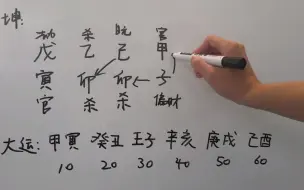 坤:
劫 杀 日元 官
戊 乙 己 甲
寅 卯 卯 子
官 杀 杀 偏财
大运: 甲寅 癸丑 壬子 辛亥 庚戌 己酉
10 20 30 40 50 60